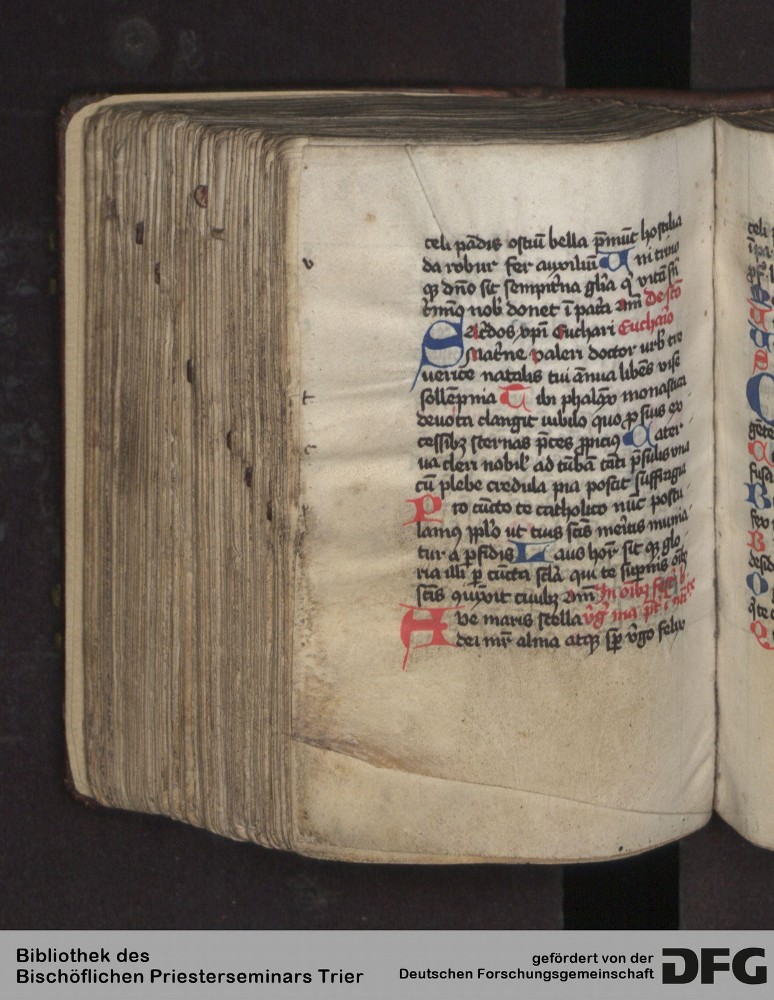 celi pādis ostiū bella p̄mūt hostilia
da robur fer auxiliū U ni trino
q̄ dn̄o sit sempit̄na gl̄ia q̄ vitā sn̄
t̄mīo nob̄ donet ī pat̄a am̄ De sc̄o
S ac̄dos xp̄i Euchari Euchario
mat̄ne valeri doctor urb̄ tre
uerice natalis tui ānua libēs vise
sollēpnia T ibi phalāx monastica
deuota clangit iubilo quo p suis ex
cessibꝫ et̄nas p̄ces ꝓpicius C ater
ua cleri nobil̄ ad tūbā tāti p̄sulis vna
cū plebe credula pia poscit suffragia
P ro cūcto te catholico nūc postu
lamꝰ pplo ut tuis sc̄is meritis munia
tur a p̄fidis L aus honor sit q̄ glo
ria illi p cūcta scl̄a qui te supnis
sc̄is quixit ciuibꝫ am̄ In oībꝫ
A ve maris stella
dei mr̄ alma atqꝫ sp̄ v̄go felix
Bibliothek des
Bischöflichen Priesterseminars Trier
gefördert von der
Deutschen Forschungsgemeinschaft
DFG